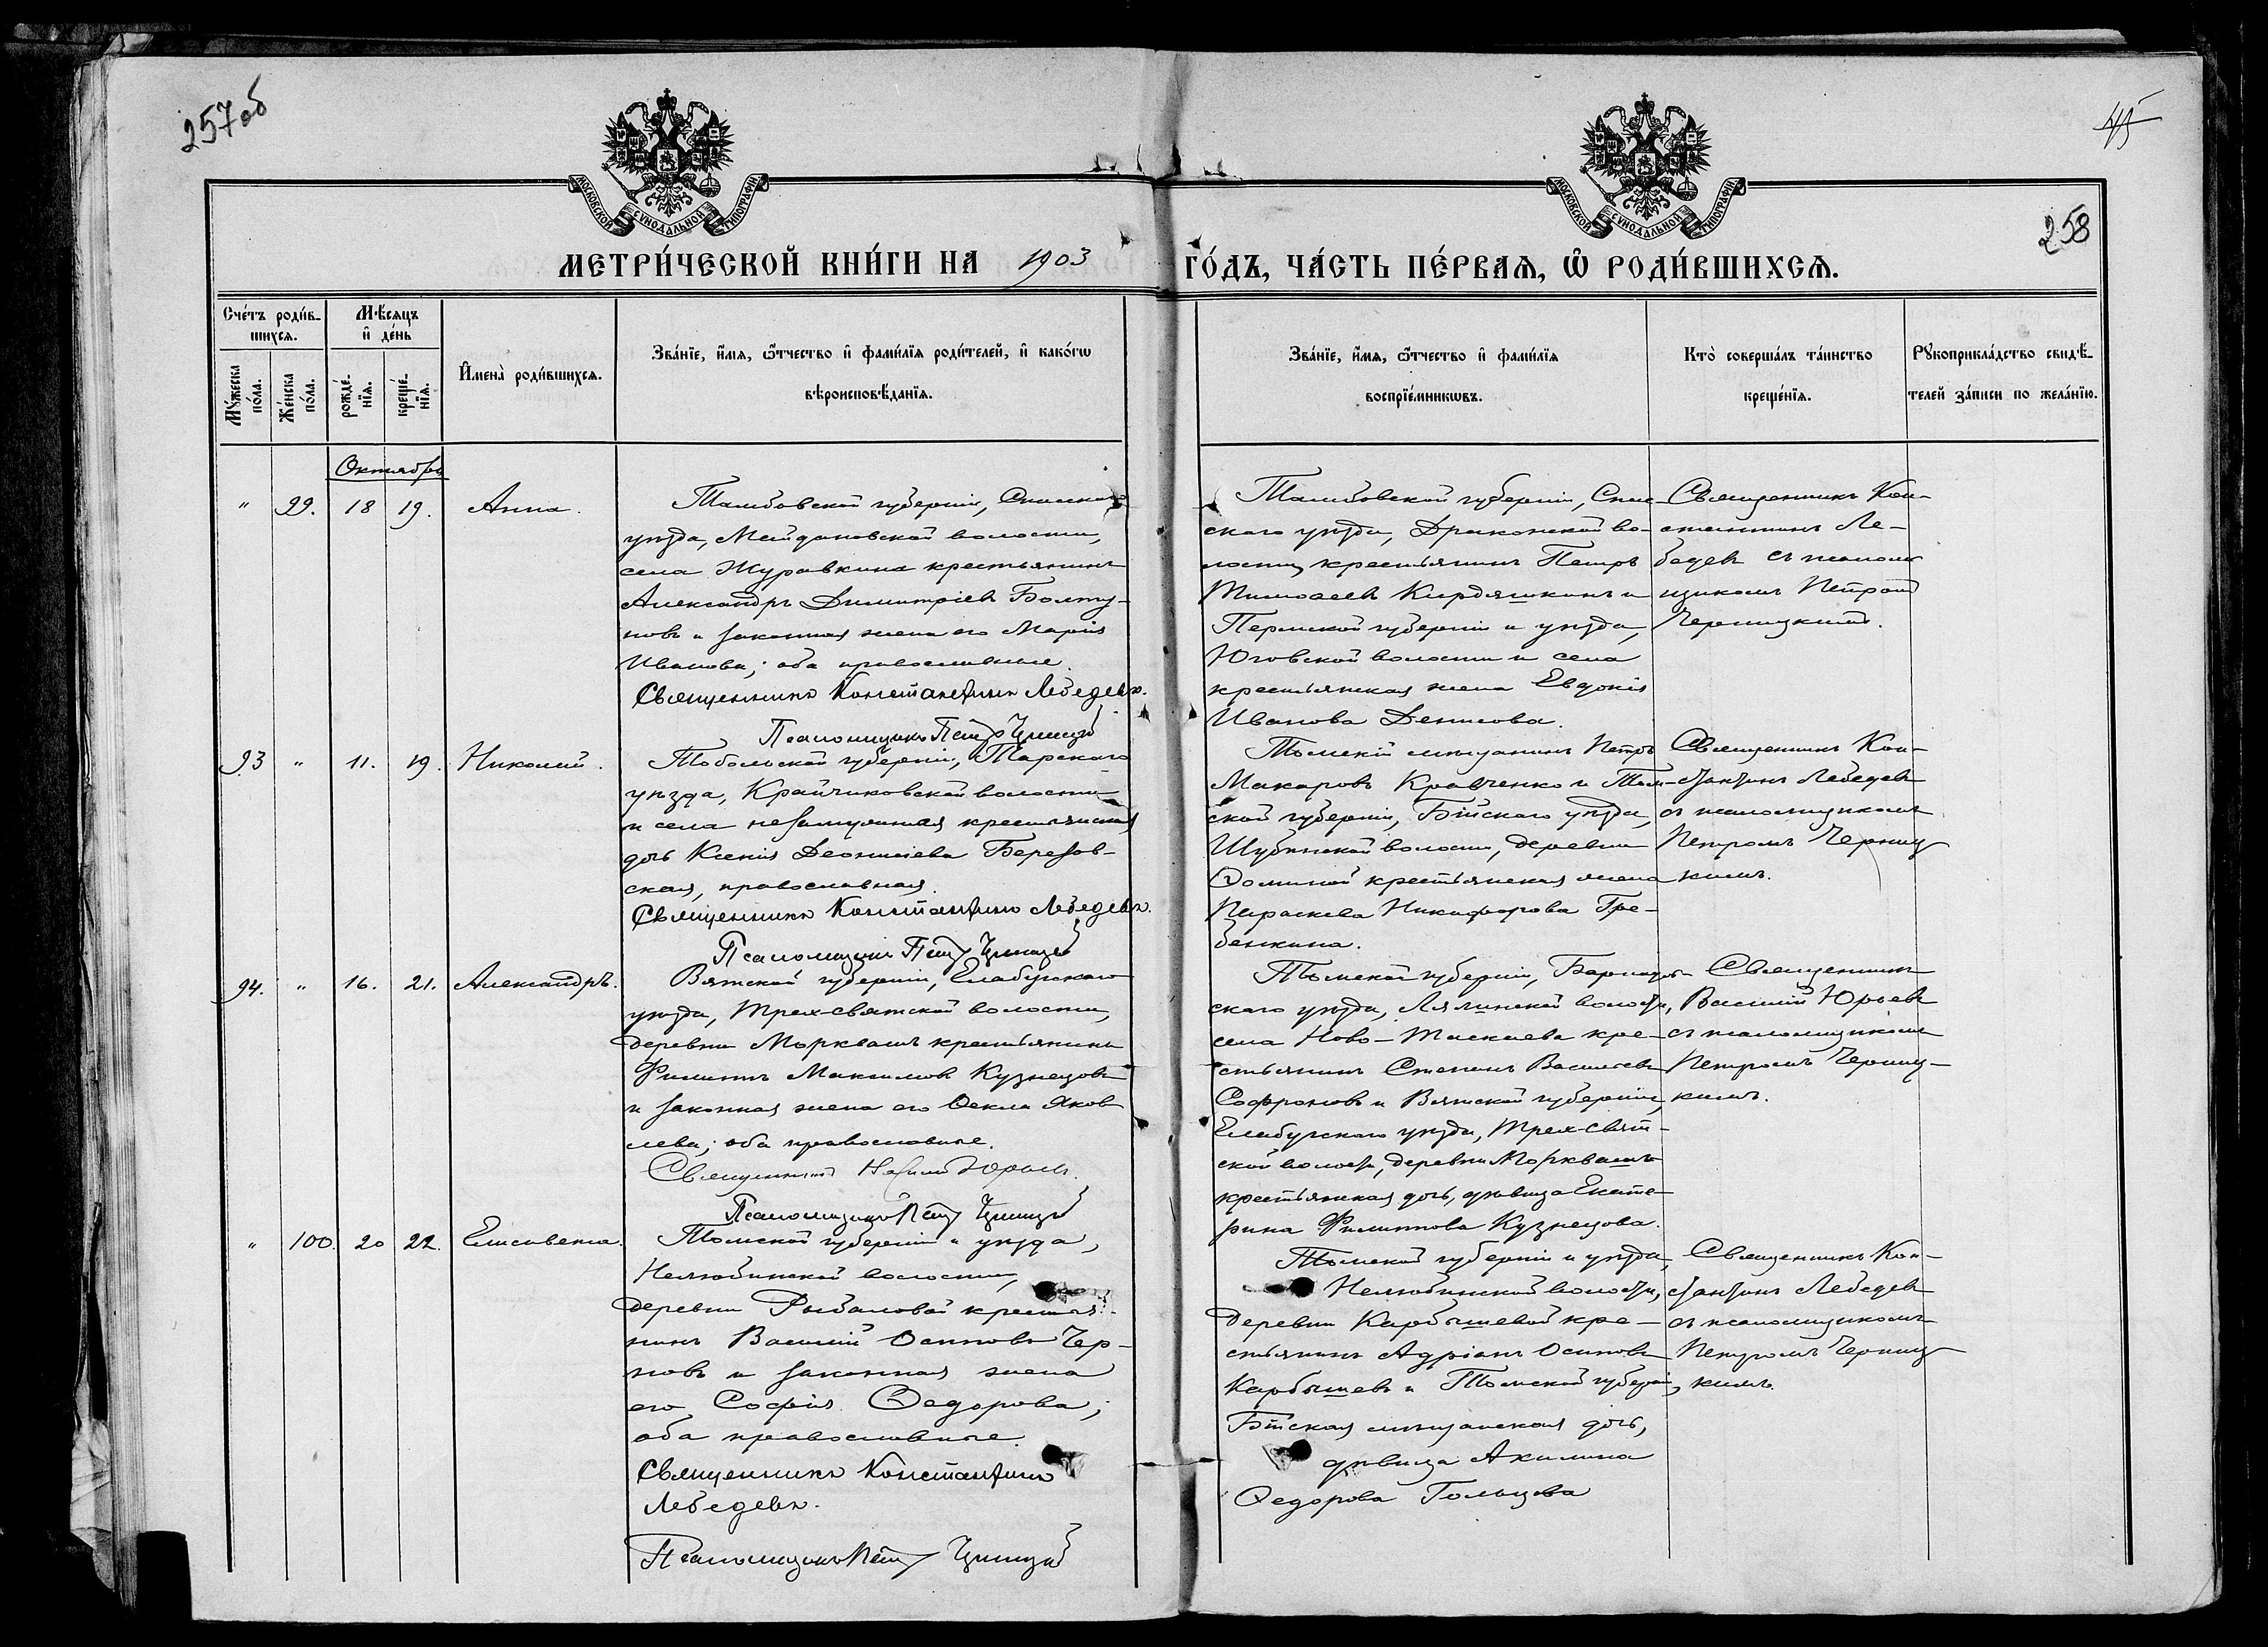 257об
45
258
МОСКОВСКОЙ СѴНОДАЛЬНОЙ ТИПОГРАФІИ
МОСКОВСКОЙ СѴНОДАЛЬНОЙ ТИПОГРАФІИ
МЕТРИ́ЧЕСКОЙ КНИ́ГИ НА 1903 ГО́ДЪ, ЧА́СТЬ ПЕ́РВАѦ, Ѽ РОДИ́ВШИХСѦ.
Сче́тъ роди́в-
шихсѧ.
Мѣ́сѧцъ
и҆ де́нь
Мꙋ́жеска по́ла.
Же́нска по́ла.
рожде́-
нїѧ.
креще́-
нїѧ.
И҆мена̀ роди́вшихсѧ.
Зва́нїе, и҆́мѧ, ѻ҆́тчество и҆ фами́лїѧ роди́телей, и҆ како́гѡ
вѣроисповѣ́данїѧ.
Зва́нїе, и҆́мѧ, ѻ҆́тчество и҆ фами́лїѧ
воспрїе́мникѡвъ.
Кто̀ соверша́лъ та́инство
креще́нїѧ.
Рꙋкоприкла́дство свидѣ́-
телей за́писи по жела́нїю.
Октябрь
" 99. 18 19. Анна.
Тамбовской губерніи, Спасскаго
уѣзда, Мейдановской волости,
села Журавкина крестьянинъ
Александръ Димитріевъ Болту-
новъ и законная жена его Марія
Иванова; оба православные.
Священникъ Константинъ Лебедевъ.
Псаломщикъ Петръ
Тамбовской губерніи, Спас-
скаго уѣзда, Дракинской во-
лости, крестьянинъ Петръ
Тимоѳеевъ Кирдяшкинъ и
Пермской губерніи и уѣзда,
Юговской волости и села
крестьянская жена Евдокія
Иванова Денисова.
Священникъ Кон-
стантинъ Ле-
бедевъ съ псалом-
щикомъ Петромъ
Черницкимъ.
93 " 11. 19. Николай.
Тобольской губерніи, Тарскаго
уѣзда, Крайчиковской волости
и села незамужняя крестьянская
дочь Ксенія Деонисіева Березов-
ская, православная.
Священникъ Константинъ Лебедевъ.
Псаломщикъ Петръ
Томскій мѣщанинъ Петръ
Макаровъ Кравченко и Том-
ской губерніи, Бійскаго уѣзда,
Шубинской волости, деревни
Ѳоминой крестьянская жена
Параскева Никифорова Гре-
бенкина.
Священникъ Кон-
стантинъ Лебедевъ
съ псаломщикомъ
Петромъ Черниц-
кимъ.
94. " 16. 21. Александръ.
Вятской губерніи, Елабужскаго
уѣзда, Трех-святской волости,
деревни Морквашъ крестьянинъ
Филиппъ Максимовъ Кузнецовъ
и законная жена его Ѳекла Яков-
лева; оба православные.
Священникъ Василій Юрьевъ.
Псаломщикъ Петръ
Томской губерніи, Барнауль-
скаго уѣзда, Лялинской волости,
села Ново-Тискаева кре-
стьянинъ Степанъ Васильевъ
Софроновъ и Вятской губерніи,
Елабужскаго уѣзда, Трех-свят-
ской волости, деревни Морквашъ
крестьянская дочь, дѣвица Екате-
рина Филиппова Кузнецова.
Священникъ
Василій Юрьевъ
съ псаломщикомъ
Петромъ Черниц-
кимъ.
" 100. 20 22. Елисавета.
Томской губерніи и уѣзда,
Нелюбинской волости,
деревни Рыбаловой крестья-
нинъ Василій Осиповъ Чер-
новъ и законная жена
его Софія Ѳедорова;
оба православные.
Священникъ Константинъ
Лебедевъ.
Псаломщикъ Петръ
Томской губерніи и уѣзда,
Нелюбинской волости,
деревни Карбышевой кре-
стьянинъ Адріанъ Осиповъ
Карбышевъ и Томской губерніи,
Бійская мѣщанская дочь,
дѣвица Акилина
Ѳедорова Гольцова
Священникъ Кон-
стантинъ Лебедевъ
съ псаломщикомъ
Петромъ Черниц-
кимъ.